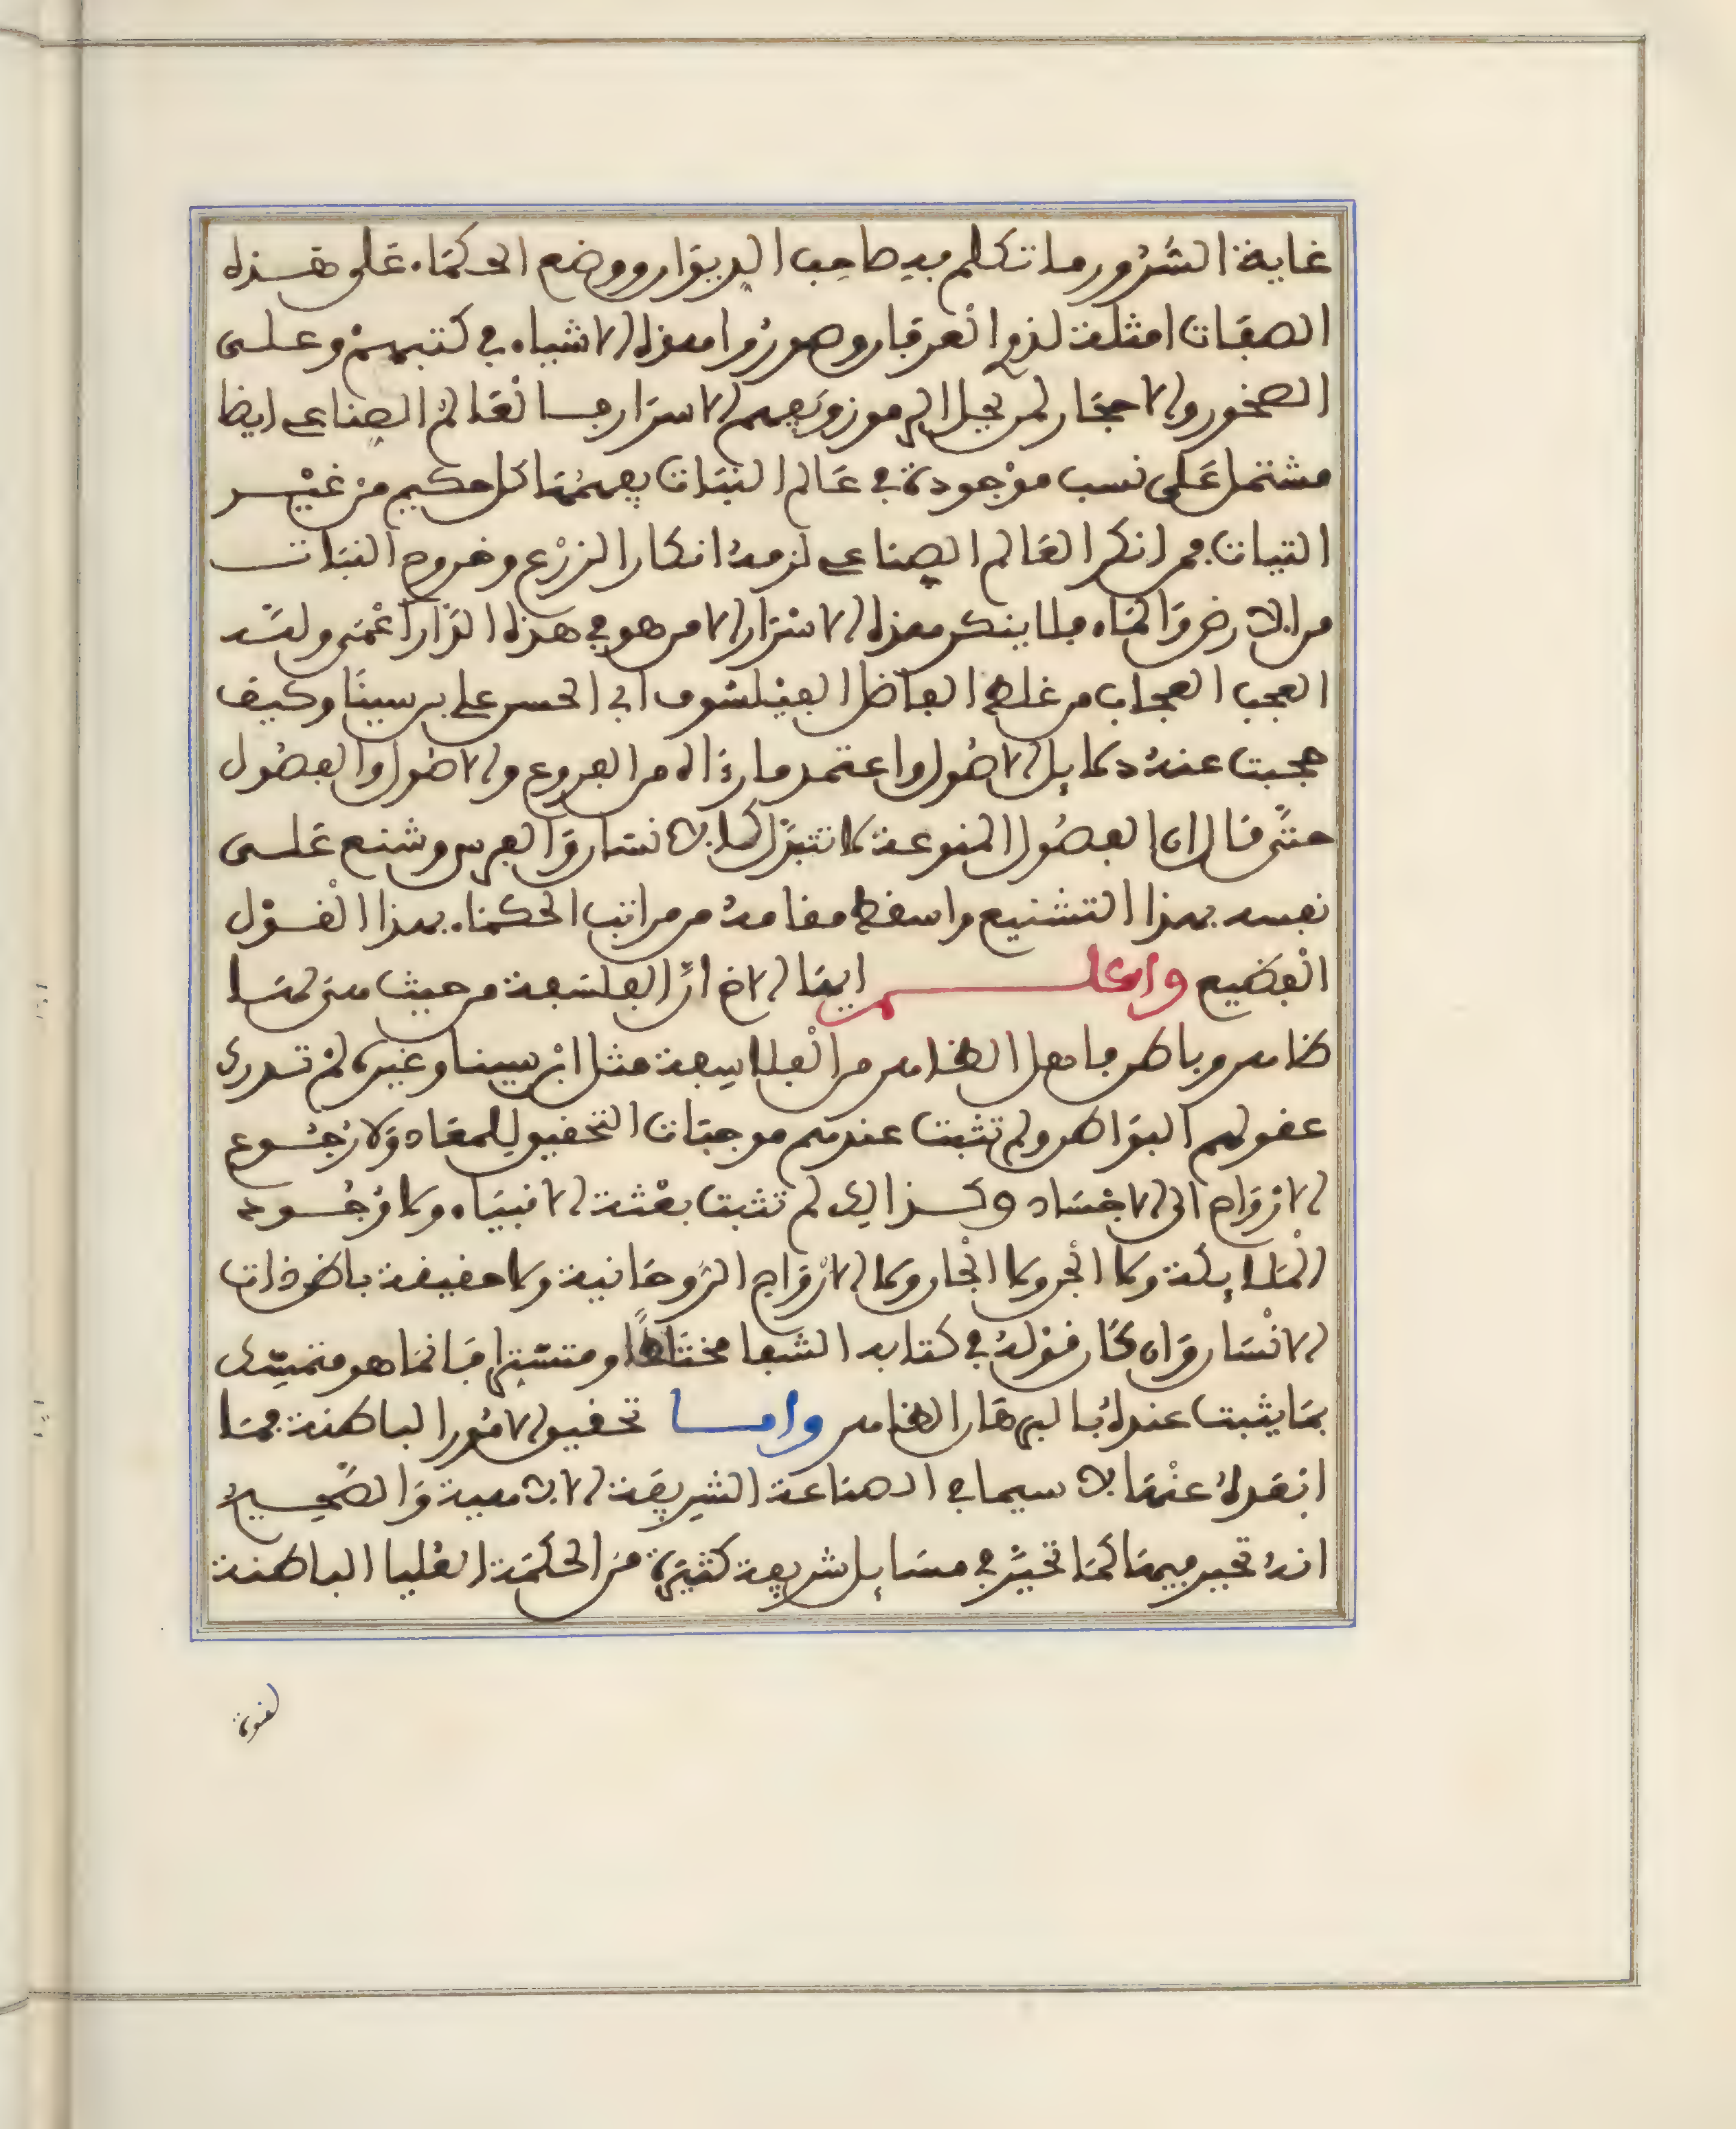 غاية الشرور ما تكلم فيه صاحب الديوان ووضع الحكماء على هذه
الصفات امثلة لذوي العرفان وصوروا هذه الاشياء في كتبهم وعلى
الصخور والاحجار لمن يحل الرموز ويفهم الاسرار فالعالم الصناعي ايضا
مشتمل على نسب موجودة في عالم النبات يفهمها كل حكيم من غير
التباث فمن انكر العالم الصناعي لزمه انكار الزرع وخروج النبات
من الارض والماء فلا ينكر هذه الاسرار الا من هو في هذه الدار اعمى وليد
العجب العجاب من غلط الفاضل الفيلسوف ابي الحسن علي بن سينا وكيف
حجبت عنه دلايل الاصول واعتمد ما رءاه من الفروع والاصول والفصول
حتى قال ان الفصول المنوعة لا تتبدل كالانسان والفرس وشنع على
نفسه بهذا التشنيع واسقط مقامه من مراتب الحكماء بهذا القول
الفضيع واعلم ايها الاخ ان الفلسفة من حيث هي لها
ظاهر وباطن فاهل الظاهر من الفلاسفة مثل ابن سينا وغيره لم تدرك
عقولهم البواطن ولم تثبت عندهم موجبات التحقيق للمعاد ولا رجوع
الارواح الى الاجساد وكذالك لم تثبت بعثة الانبياء ولا وجود
الملايكة ولا الجن ولا الجان ولا الارواح الروحانية ولا حقيقة باطن ذات
الانسان وان كان قوله في كتابه الشفا مختلطا ومتستر فانما هو متمسك
بما يثبت عنده بالبرهان الظاهر واما تحقيق الامور الباطنة فما
ابعده عنها لا سيما في الصناعة الشريفة الالاهية والصحيح
انه تحير فيها كما تحير في مسايل شريفة كثيرة من الحكمة العليا الباطنة